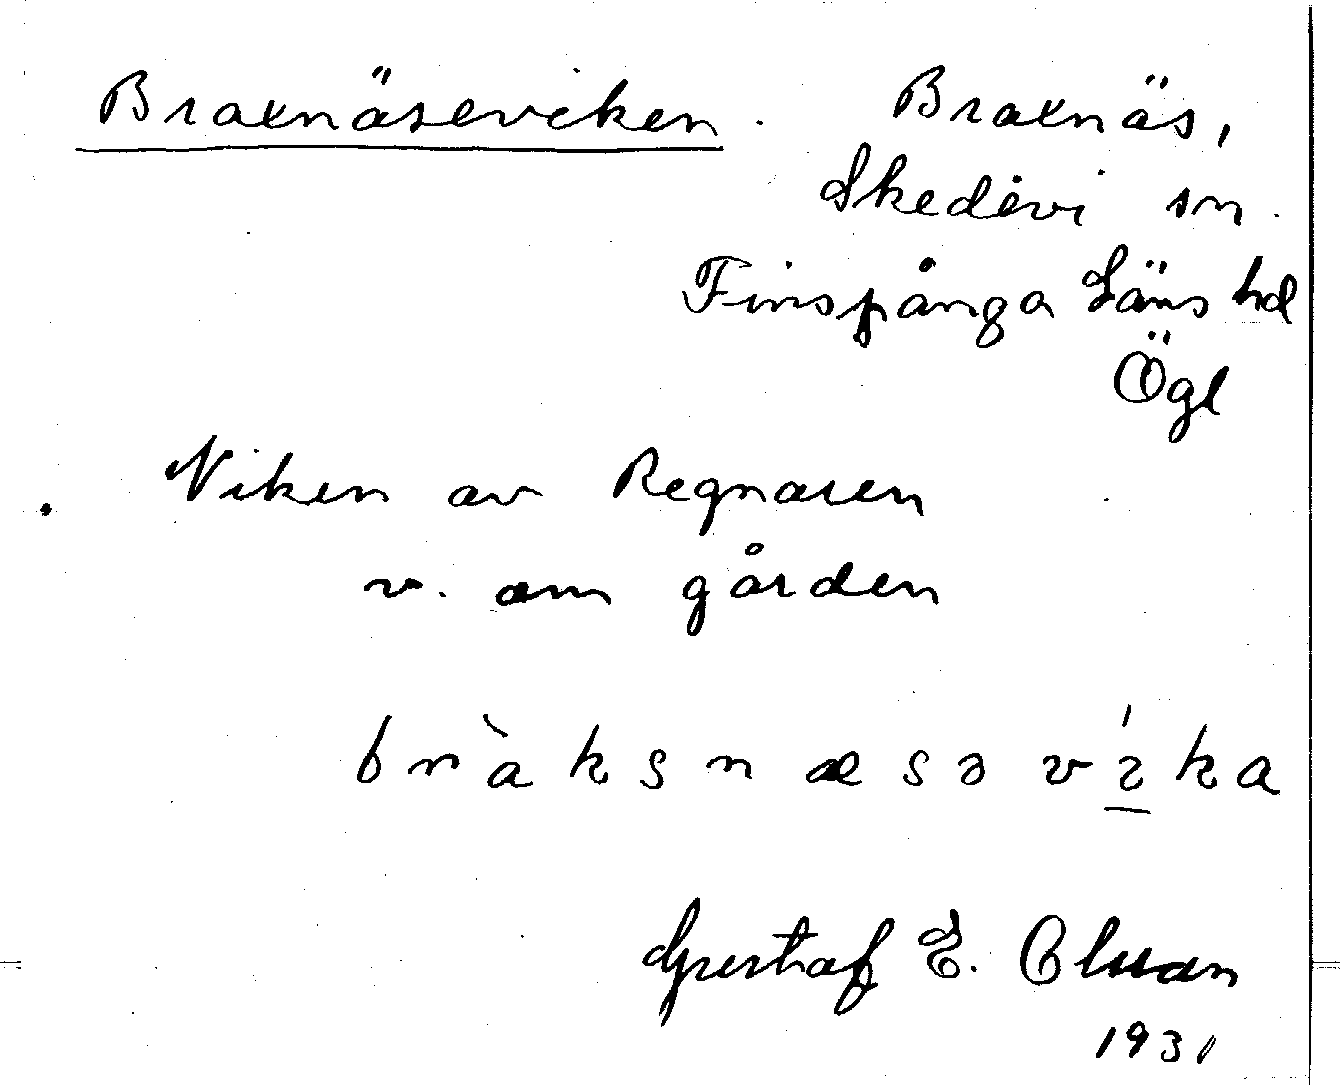 Braxnäseviken. Braxnäs,
Skedevi sn.
Finspånga Läns hd
Ögl
Viken av Regnaren
v. om gården
bràksnæsəvíka
Gustaf E. Olsson
1931